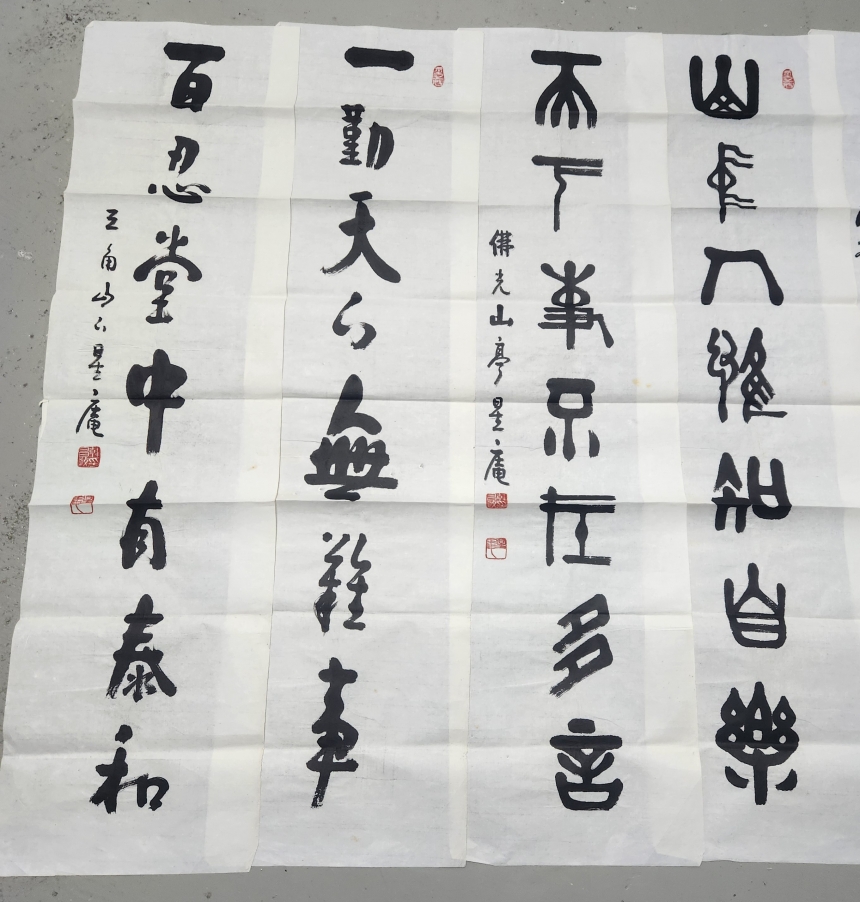 山中人維知自樂
天下事只在多言
佛光山亭星庵
一勤天下無難事
百忍堂中有泰和
三角山下星庵